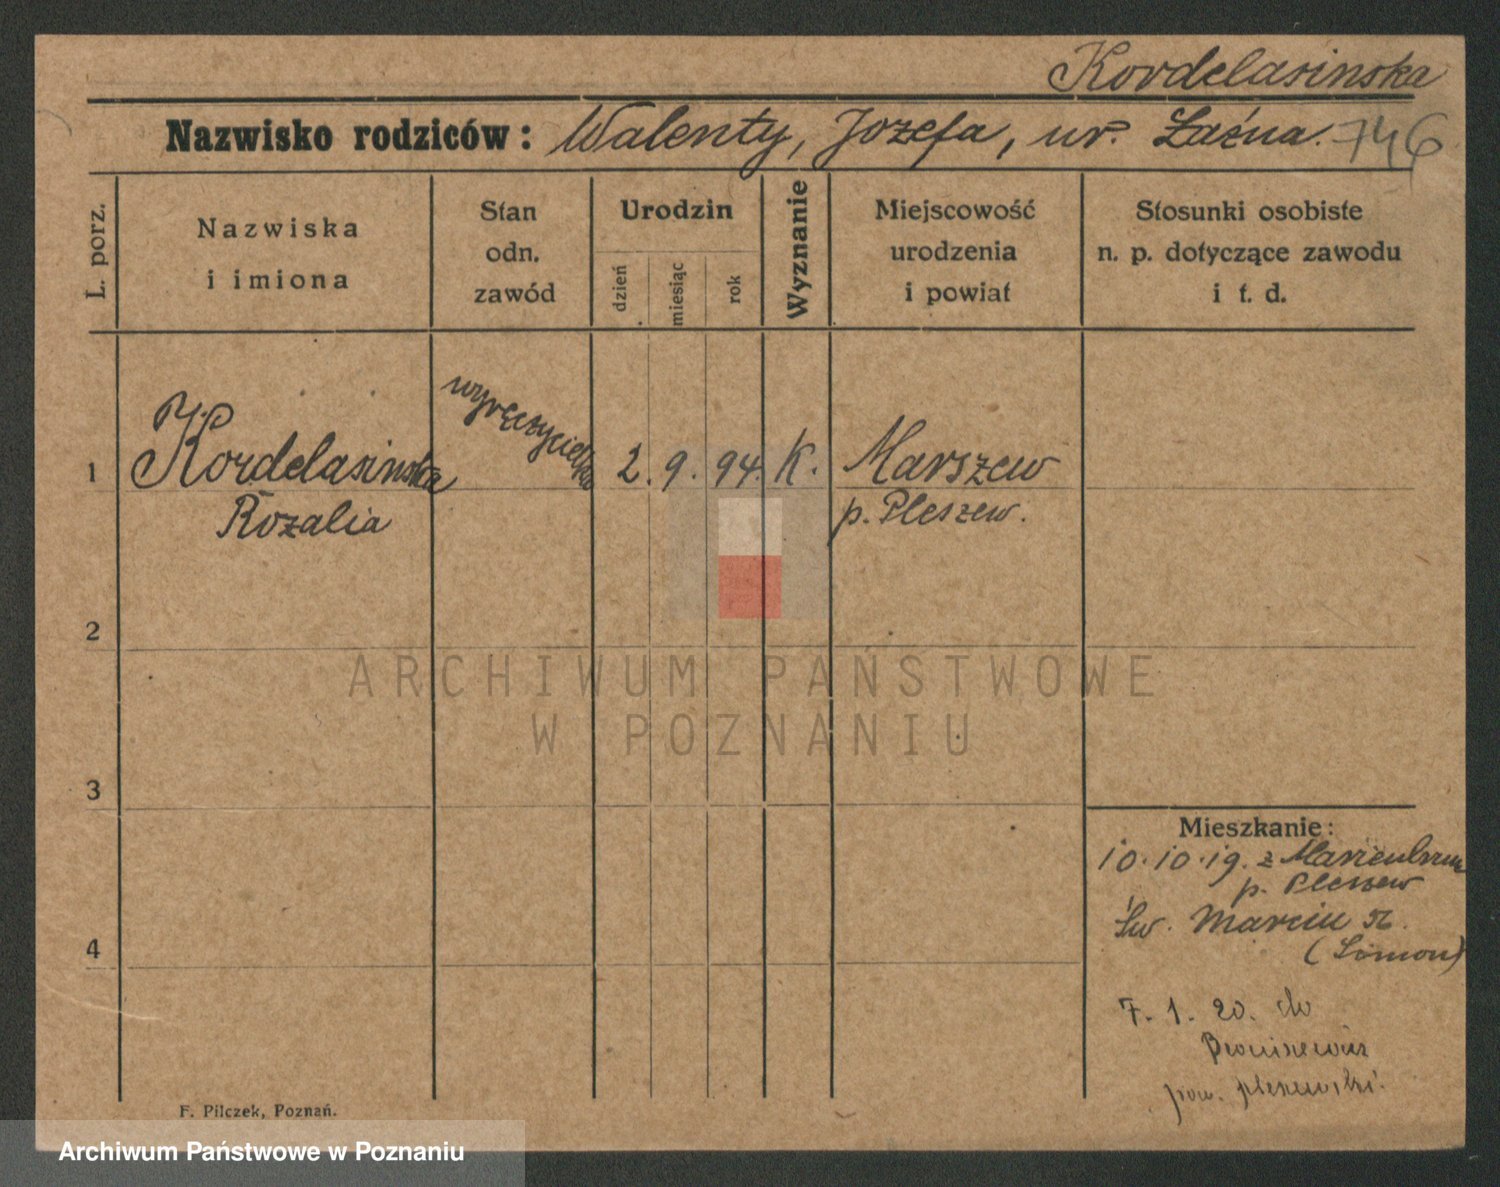 Kordelasinska
Nazwisko rodziców: Walenty, Jozefa, ur. Łaźna. 746
L. porz.
Nazwiska
i imiona
Stan
odn.
zawód
Urodzin
dzień
miesiąc
rok
Wyznanie
Miejscowość
urodzenia
i powiat
Stosunki osobiste
n. p. dotyczące zawodu
i t. d.
1
Kordelasinska
Rozalia
wyręczycielka
2. 9. 94. K.
Marszew
p. Pleszew.
2
3
4
Mieszkanie:
10.10.19. z
p. Pleszew
Św. Marcin
7. 1. 20. do
Broniszewic
pow. pleszewski.
F. Pilczek, Poznań.
ARCHIWUM PAŃSTWOWE
W POZNANIU
Archiwum Państwowe w Poznaniu